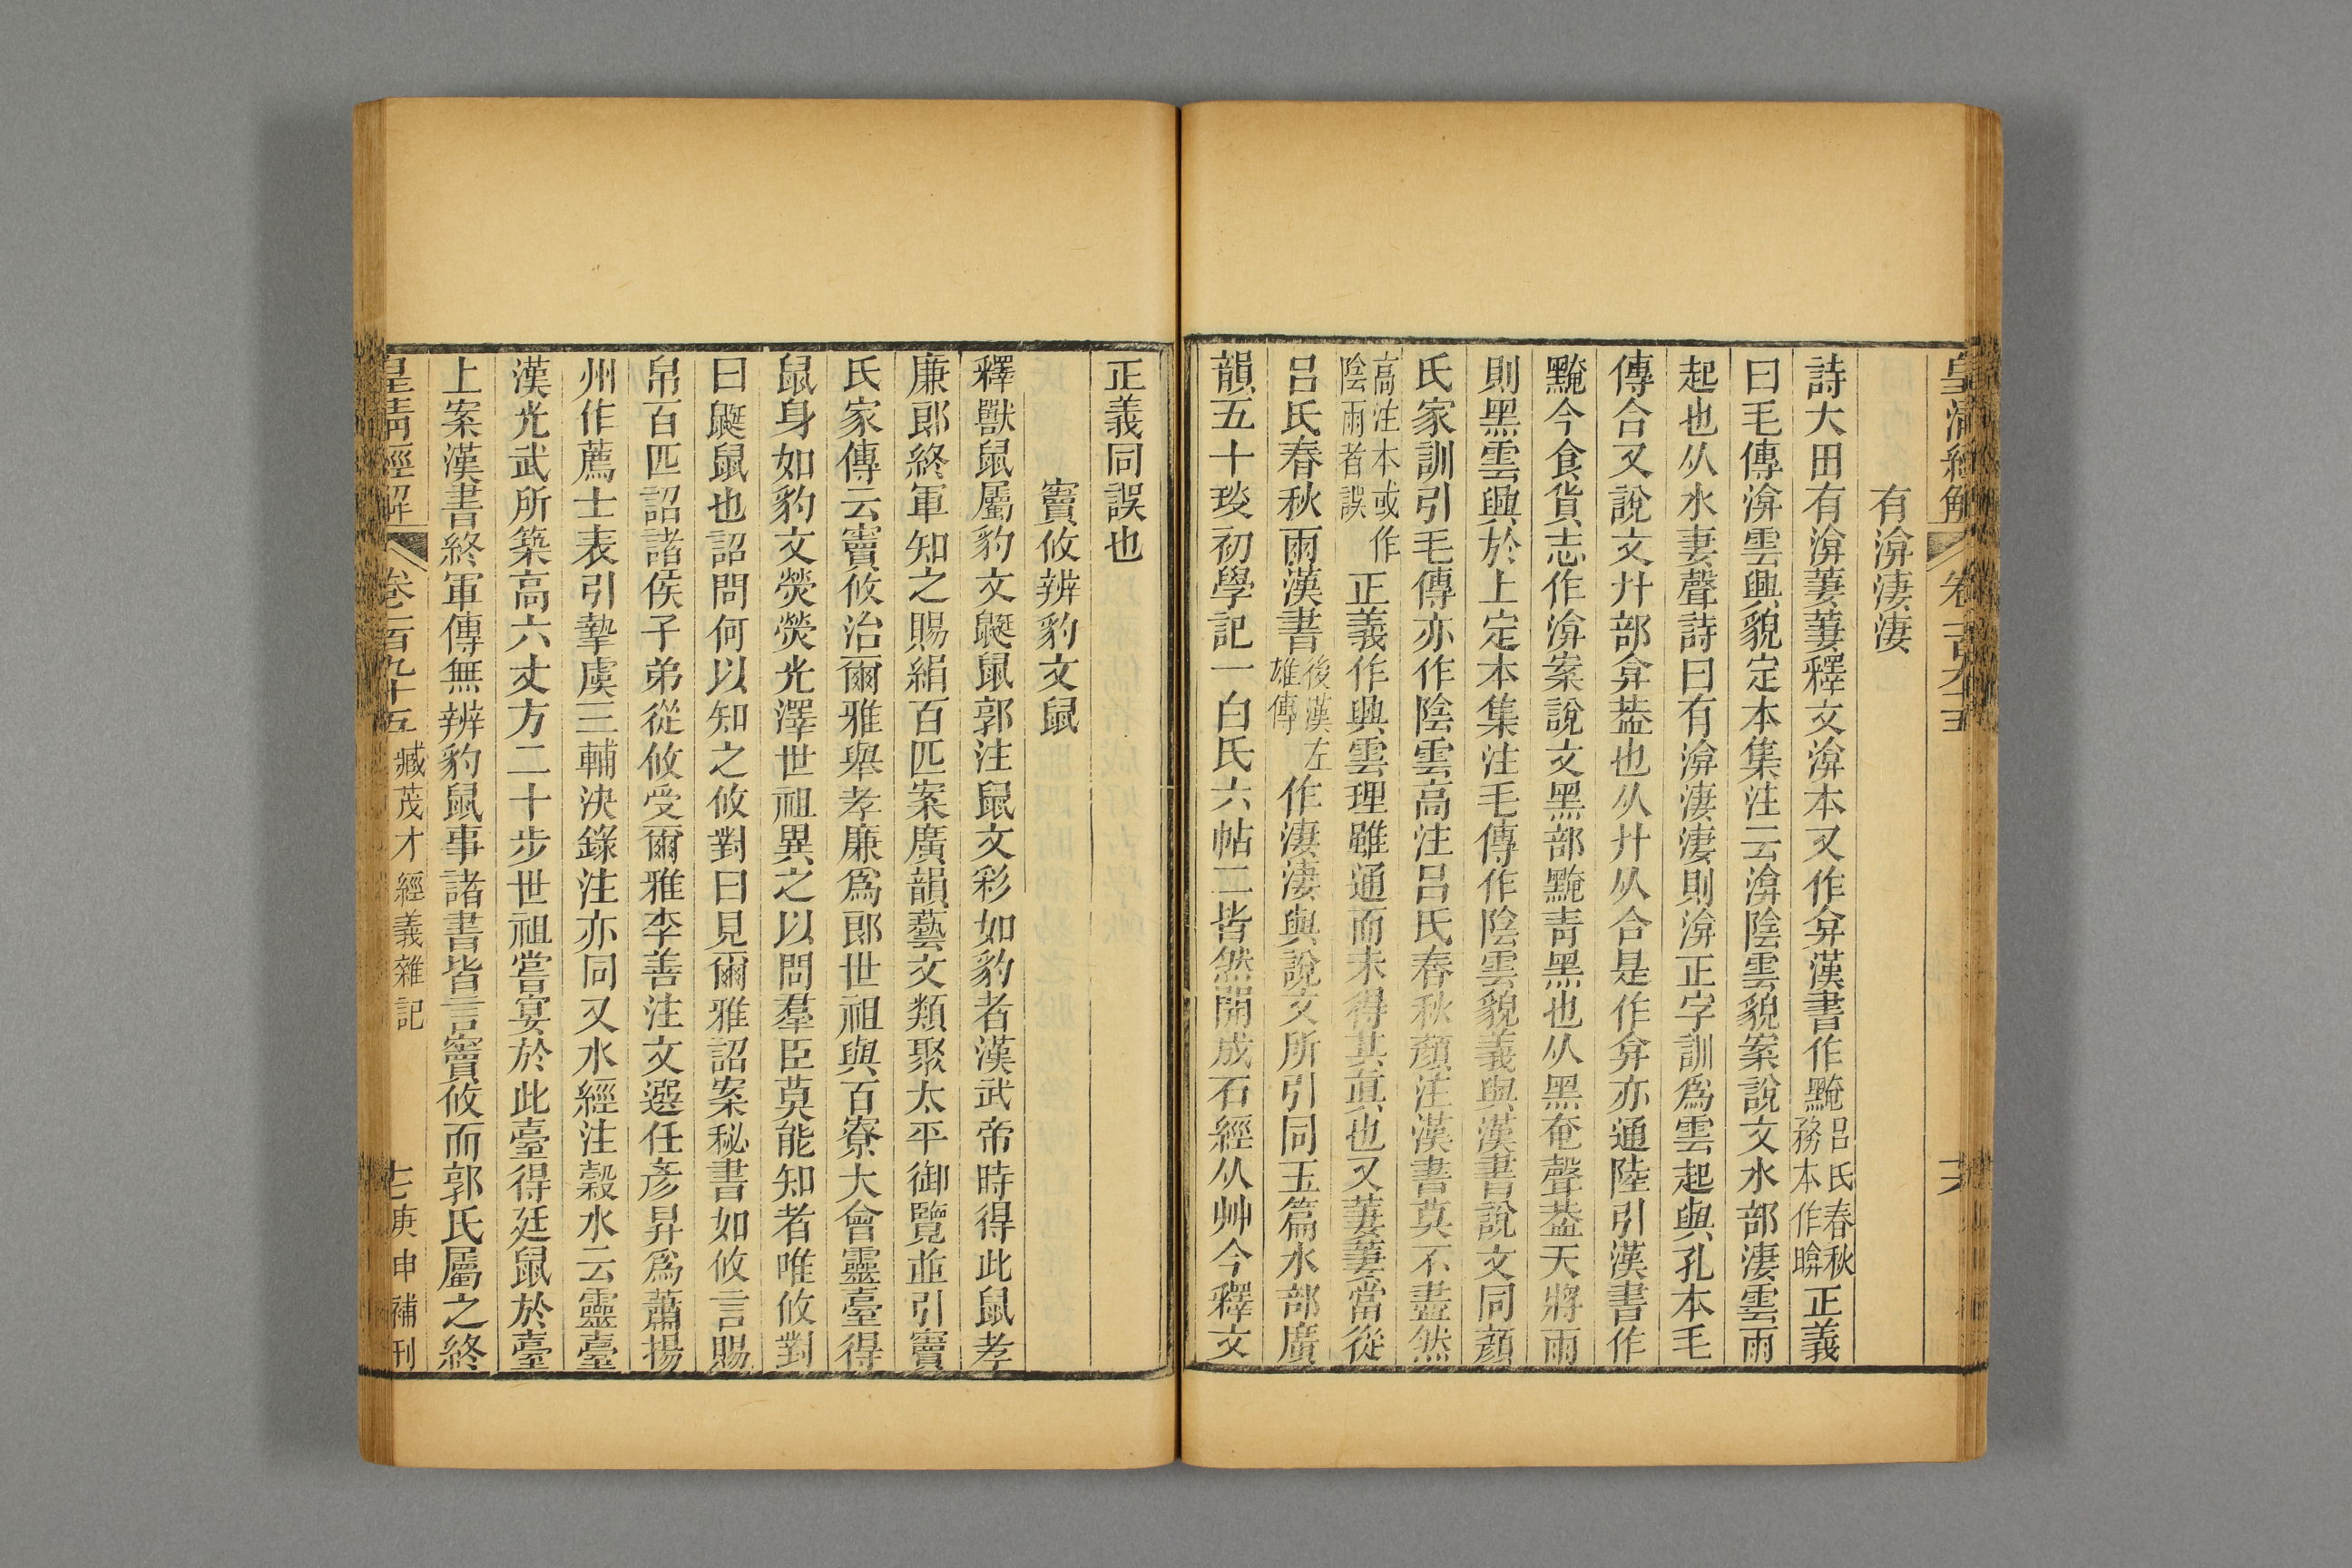 皇清經解
卷一百九十五
有渰淒淒
詩大田有渰萋萋釋文渰本又作弇漢書作黤呂氏春秋務本作晻正義
曰毛傳渰雲興貌定本集注云渰陰雲貌案說文水部淒雲雨
起也从水妻聲詩曰有渰淒淒則渰正字訓爲雲起與孔本毛
傳合又說文廾部弇葢也从廾从合是作弇亦通陸引漢書作
黤今食貨志作渰案說文黑部黤靑黑也从黑奄聲葢天將雨
則黑雲興於上定本集注毛傳作陰雲貌義與漢書說文同顔
氏家訓引毛傳亦作陰雲高注呂氏春秋顔注漢書莫不盡然
高注本或作陰雨者誤正義作興雲理雖通而未得其眞也又萋萋當從
呂氏春秋雨漢書後漢左雄傳作淒淒與說文所引同玉篇水部廣
韻五十琰初學記一白氏六帖二皆然開成石經从艸今釋文
正義同誤也
竇攸辨豹文鼠
釋獸鼠屬豹文鼮鼠郭注鼠文彩如豹者漢武帝時得此鼠孝
廉郎終軍知之賜絹百匹案廣韻藝文類聚太平御覽並引竇
氏家傳云竇攸治爾雅舉孝廉爲郎世祖與百寮大會靈臺得
鼠身如豹文熒熒光澤世祖異之以問羣臣莫能知者唯攸對
曰鼮鼠也詔問何以知之攸對曰見爾雅詔案秘書如攸言賜
帛百匹詔諸侯子弟從攸受爾雅李善注文選任彥昇爲蕭揚
州作薦士表引摯虞三輔決錄注亦同又水經注穀水云靈臺
漢光武所築高六丈方二十步世祖嘗宴於此臺得廷鼠於臺
上案漢書終軍傳無辨豹鼠事諸書皆言竇攸而郭氏屬之終
皇清經解
卷一百九十五
臧茂才經義雜記
七
庚申補刊